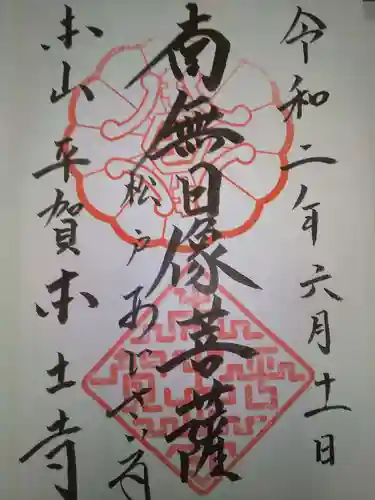 令和二年六月十一日
南無日像菩薩
松戸あじさい寺
本山平賀本土寺